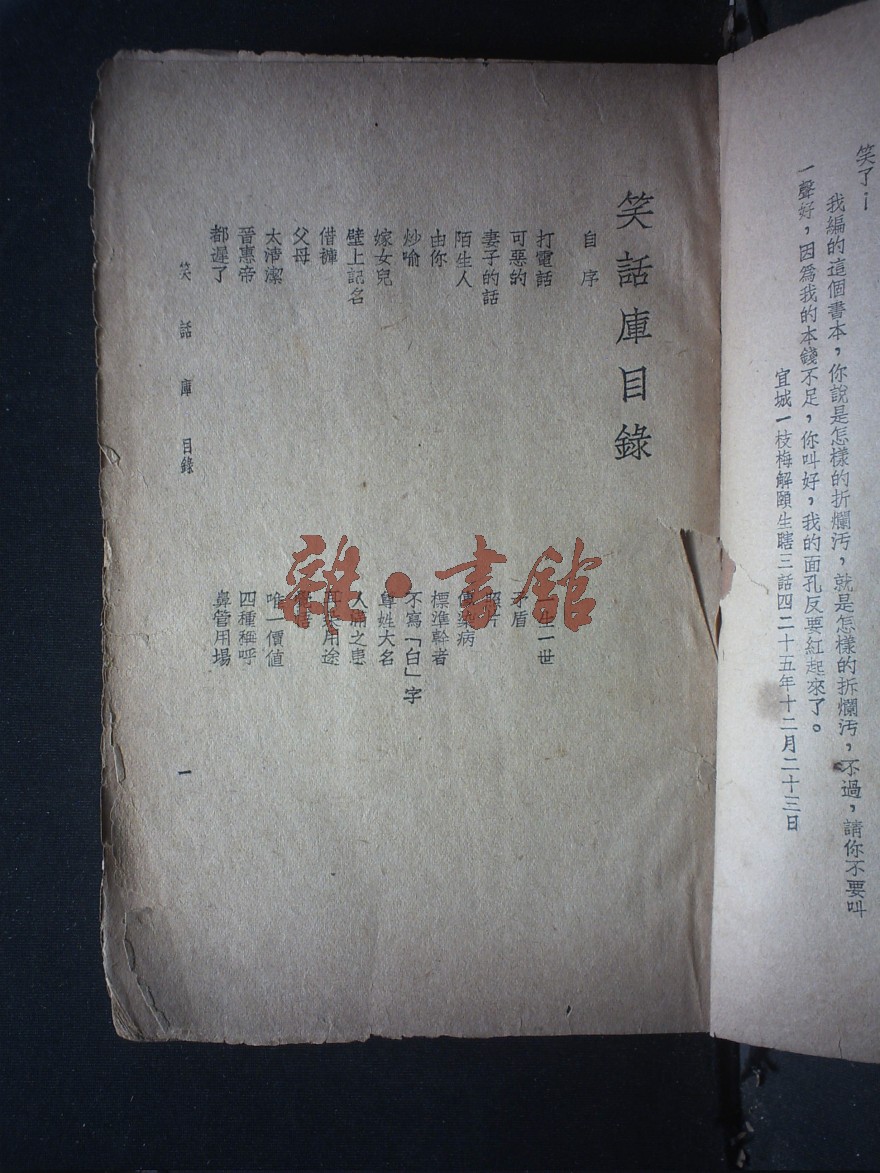 笑了！
我編的這個書本，你說是怎樣的折爛汚，就是怎樣的折爛汚，不過，請你不要叫
一聲好，因爲我的本錢不足，你叫好，我的面孔反要紅起來了。
宜城一枝梅解頤生瞎三話四二十五年十二月二十三日
笑話庫目錄
自序
打電話
可惡的
妻子的話
陌生人
由你
妙喻
嫁女兒
壁上記名
借褲
父母
太清潔
晉惠帝
都遲了
生一世
矛盾
照片
傳染病
標準幹者
不寫「白」字
尊姓大名
人滿之患
用途
唯一價値
四種稱呼
鼻管用場
笑話庫 目錄
一
雜·書館